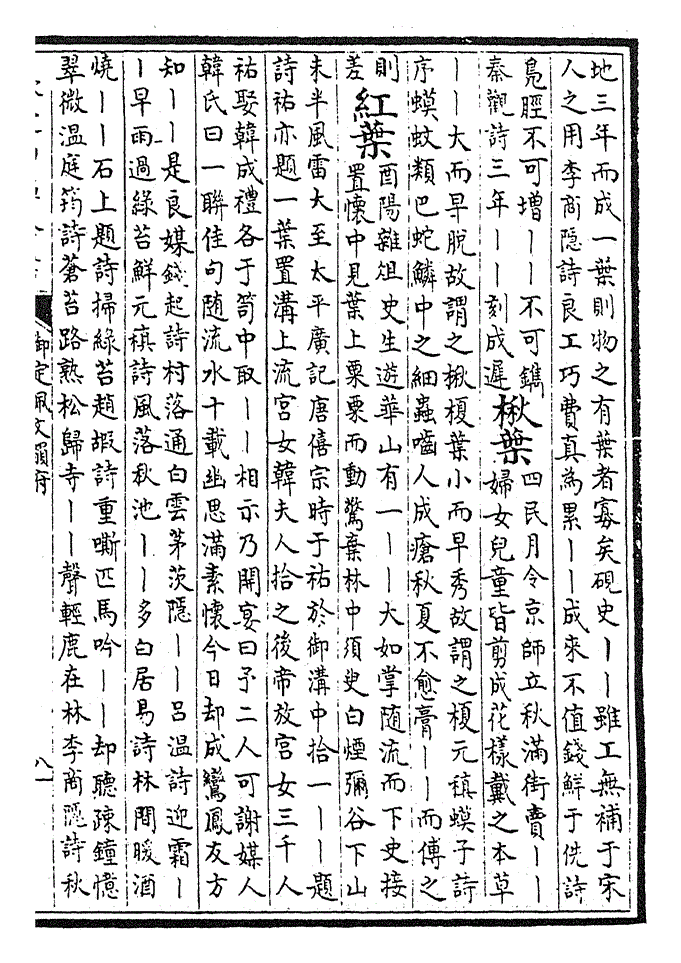 地三年而成一葉則物之有葉者寡矣硯史｜｜雖工無補于宋
人之用李商隱詩良工巧費真為累｜｜成來不值錢鮮于侁詩
鳧脛不可增｜｜不可鐫
秦觀詩三年｜｜刻成遲
楸葉
四民月令京師立秋滿街賣｜｜
婦女兒童皆剪成花樣戴之本草
｜｜大而早脫故謂之楸榎葉小而早秀故謂之榎元稹蟆子詩
序蟆蚊類巴蛇鱗中之細蟲嚙人成瘡秋夏不愈膏｜｜而傅之
則
差
紅葉
酉陽雜俎史生遊華山有一｜｜大如掌隨流而下史接
置懷中見葉上栗栗而動驚棄林中須臾白煙彌谷下山
未半風雷大至太平廣記唐僖宗時于祐於御溝中拾一｜｜題
詩祐亦題一葉置溝上流宮女韓夫人拾之後帝放宮女三千人
祐娶韓成禮各于笥中取｜｜相示乃開宴曰予二人可謝媒人
韓氏曰一聯佳句隨流水十載幽思滿素懷今日却成鸞鳳友方
知｜｜是良媒錢起詩村落通白雲茅茨隱｜｜呂溫詩迎霜｜
｜早雨過綠苔鮮元稹詩風落秋池｜｜多白居易詩林間暖酒
燒｜｜石上題詩掃綠苔趙嘏詩重嘶匹馬吟｜｜却聽疎鐘憶
翠微溫庭筠詩蒼苔路熟松歸寺｜｜聲輕鹿在林李商隱詩秋
御定佩文韻府